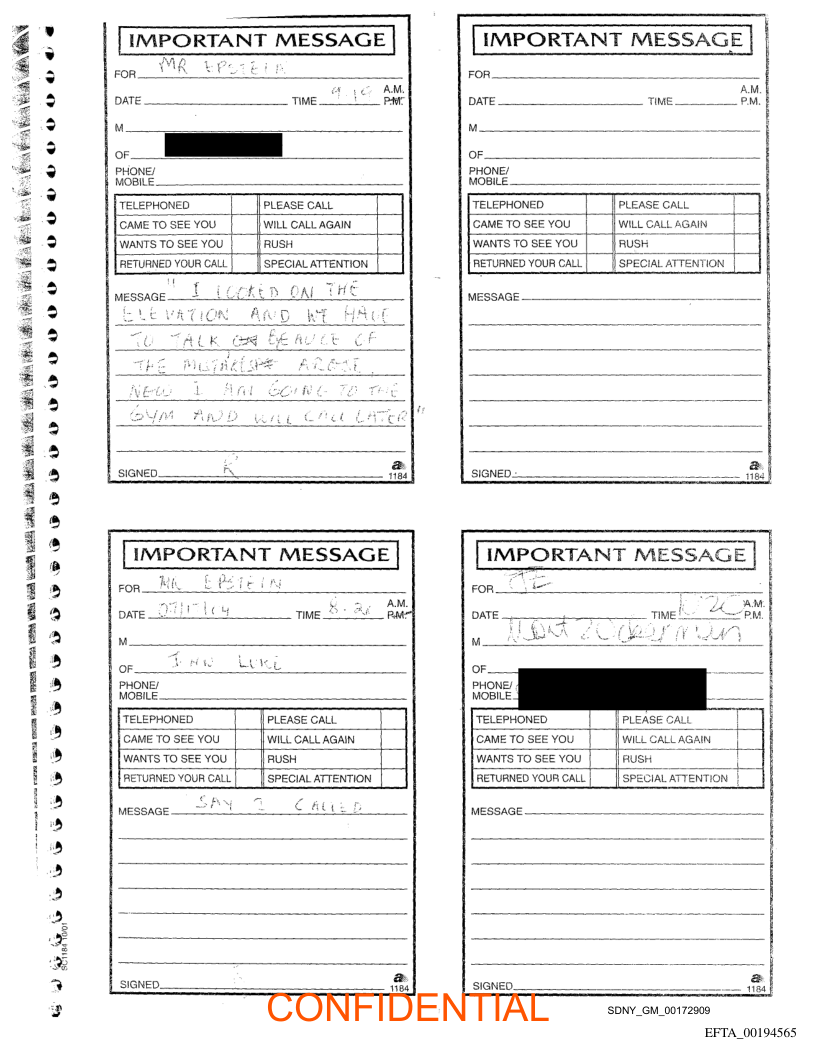 IMPORTANT MESSAGE
FOR MR EPSTEIN
A.M.
DATE TIME 9.10 P.M.
M
OF
PHONE/
MOBILE
TELEPHONED PLEASE CALL
CAME TO SEE YOU WILL CALL AGAIN
WANTS TO SEE YOU RUSH
RETURNED YOUR CALL SPECIAL ATTENTION
MESSAGE " I LOOKED ON THE
ELEVATION AND WE HAVE
TO TALK BEAUCE OF
THE AROSE.
NEW I AM GOING TO THE
GYM AND WILL CALL LATER "
SIGNED
a
1184
IMPORTANT MESSAGE
FOR
A.M.
DATE TIME P.M.
M
OF
PHONE/
MOBILE
TELEPHONED PLEASE CALL
CAME TO SEE YOU WILL CALL AGAIN
WANTS TO SEE YOU RUSH
RETURNED YOUR CALL SPECIAL ATTENTION
MESSAGE
SIGNED
a
1184
IMPORTANT MESSAGE
FOR MR EPSTEIN
A.M.
DATE TIME P.M.
M
OF
PHONE/
MOBILE
TELEPHONED PLEASE CALL
CAME TO SEE YOU WILL CALL AGAIN
WANTS TO SEE YOU RUSH
RETURNED YOUR CALL SPECIAL ATTENTION
MESSAGE SAY I CALLED
SIGNED
a
1184
IMPORTANT MESSAGE
FOR JE
A.M.
DATE TIME P.M.
M
OF
PHONE/
MOBILE
TELEPHONED PLEASE CALL
CAME TO SEE YOU WILL CALL AGAIN
WANTS TO SEE YOU RUSH
RETURNED YOUR CALL SPECIAL ATTENTION
MESSAGE
SIGNED
a
1184
SC1184 10/01
CONFIDENTIAL
SDNY_GM_00172909
EFTA_00194565